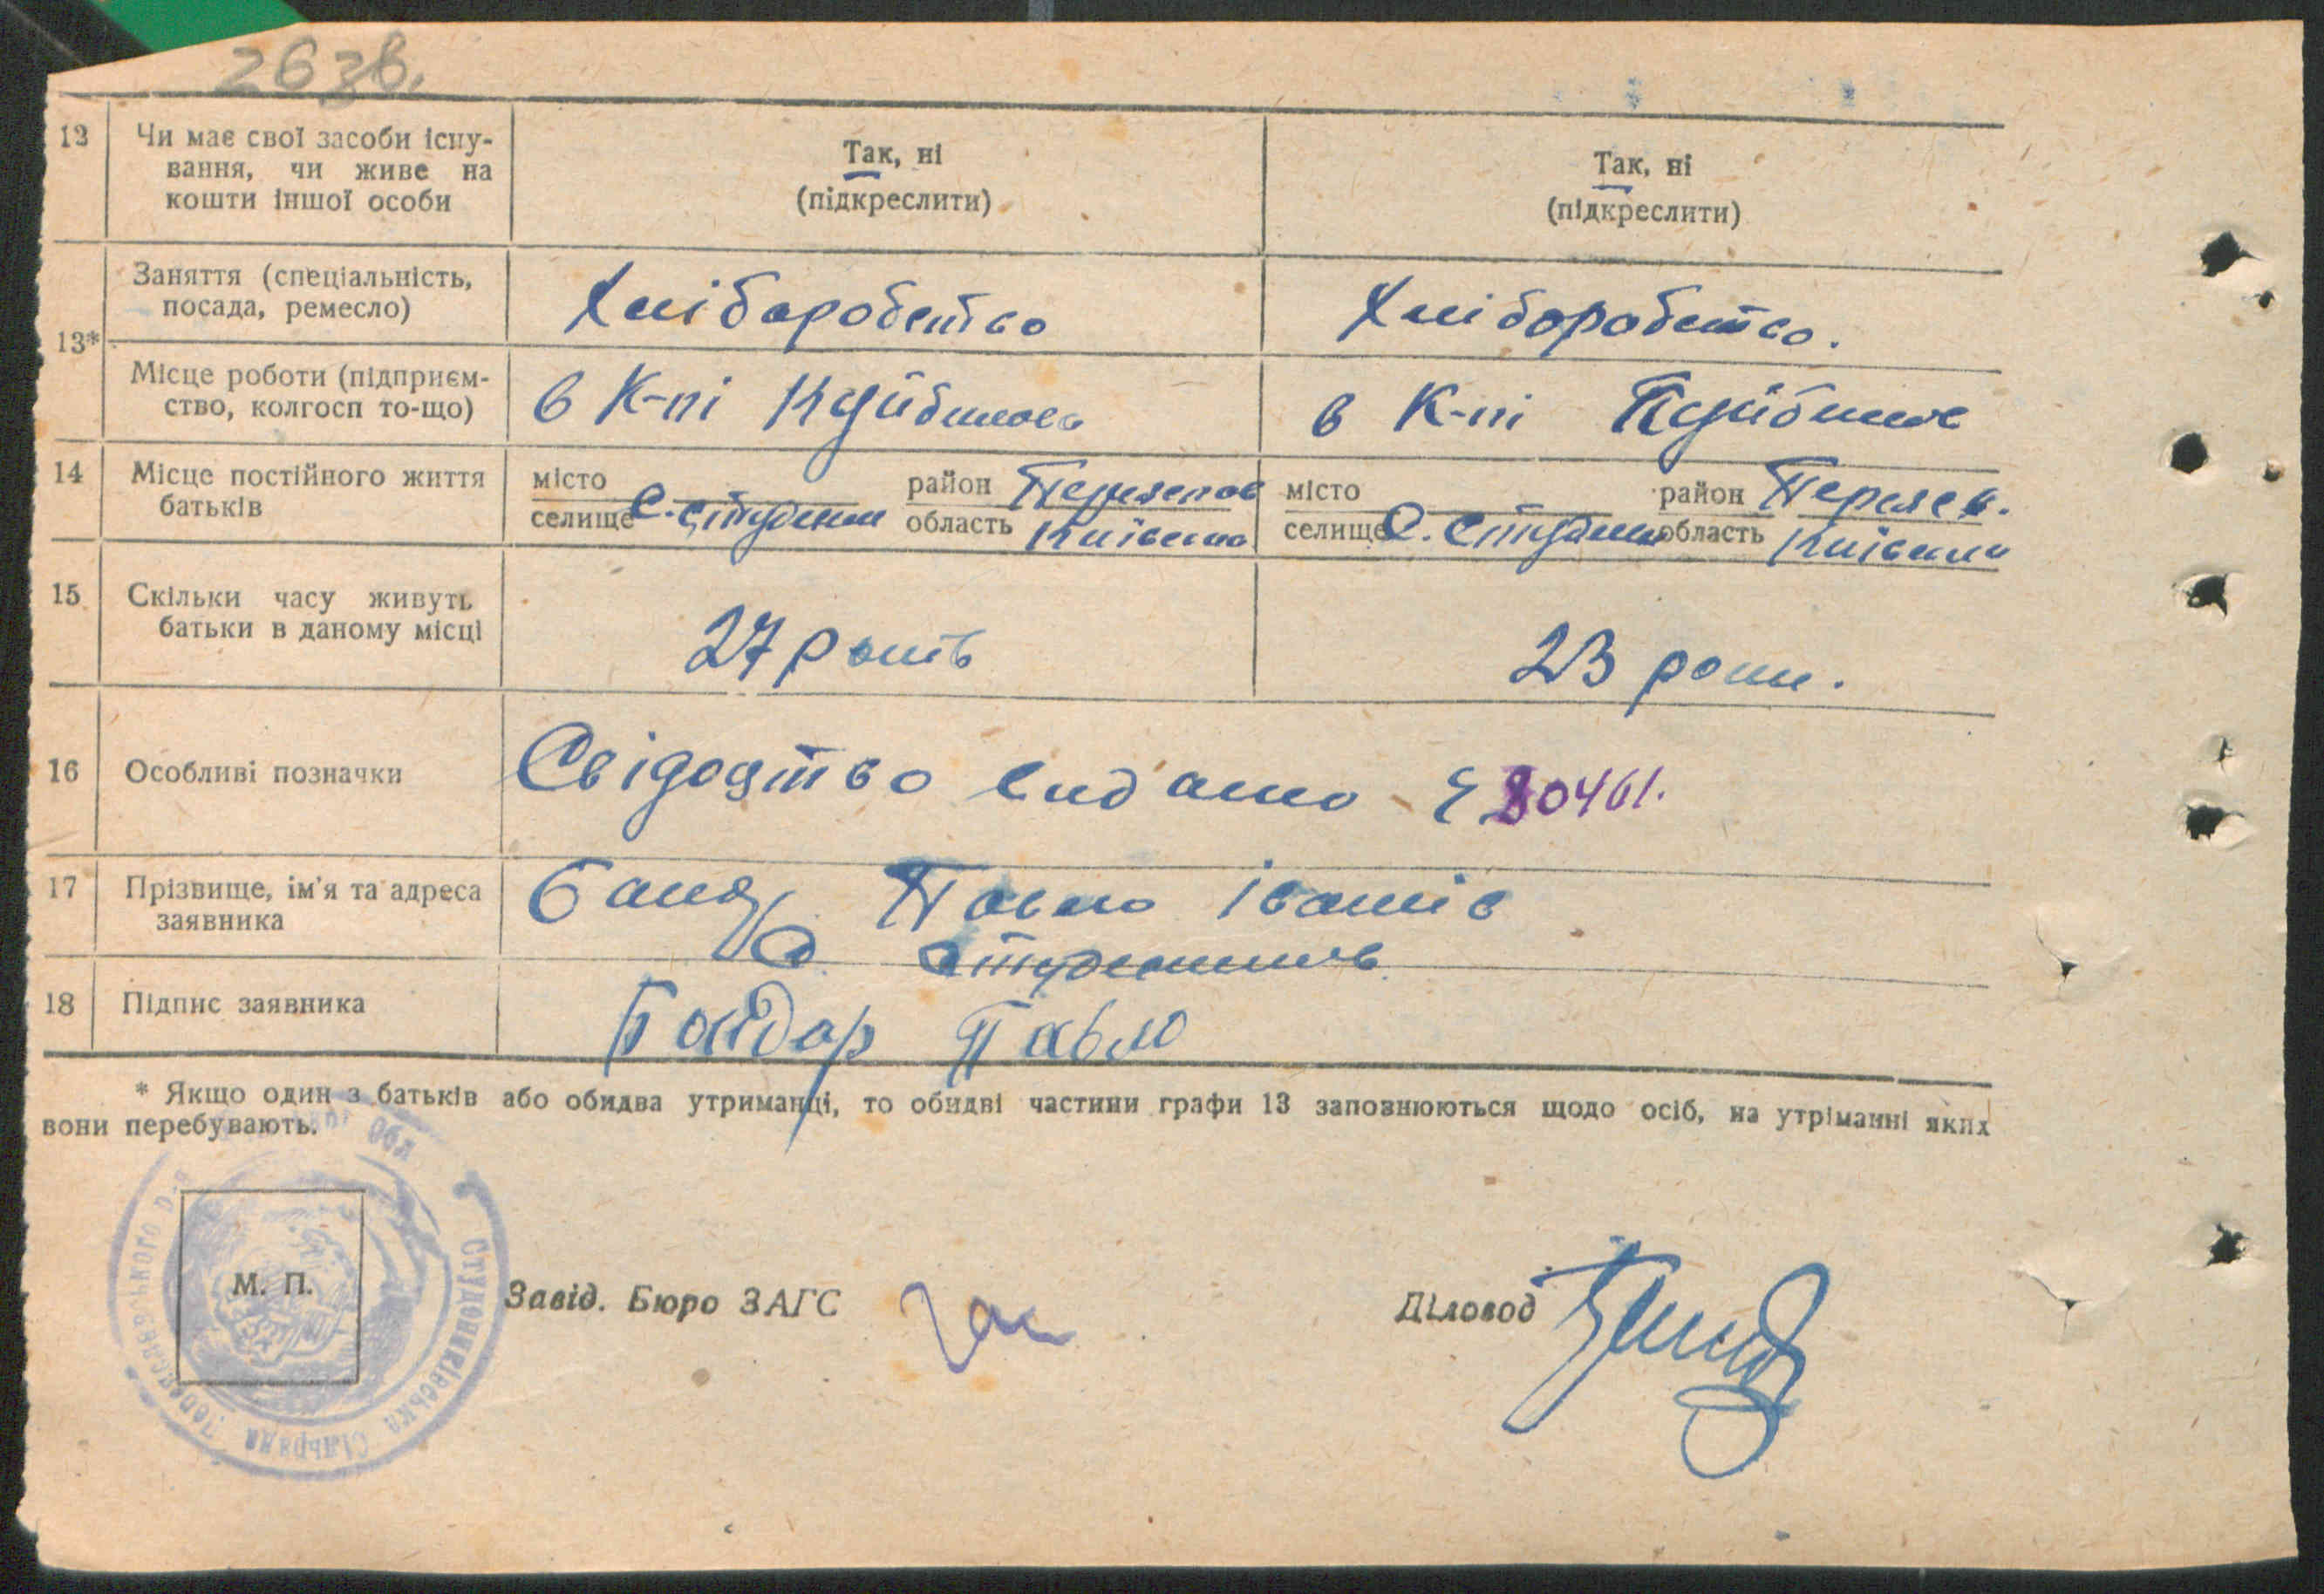 263в.
12 Чи має свої засоби існу-
вання, чи живе на
кошти іншої особи
Так, ні
(підкреслити)
Так, ні
(підкреслити)
13*
Заняття (спеціальність,
посада, ремесло)
Хліборобство
Хліборобство.
Місце роботи (підприєм-
ство, колгосп то-що)
в К-пі Куйбишева
в К-пі Куйбише
14 Місце постійного життя
батьків
місто
селище с. Студенки
район Переяслов
область Київська
місто
селище с. Студенки
район Переяс.
область Київська
15 Скільки часу живуть
батьки в даному місці
27 років
23 роки.
16 Особливі позначки
Свідоцтво видано 80461.
17 Прізвище, ім'я та адреса
заявника
Павло Іванів
18 Підпис заявника
Бондар Павло
* Якщо один з батьків або обидва утриманці, то обидві частини графи 13 заповнюються щодо осіб, на утріманні яких
вони перебувають.
М. П.
Завід. Бюро ЗАГС
Діловод
Студениківська Сільрада Переяславського р-н Обл